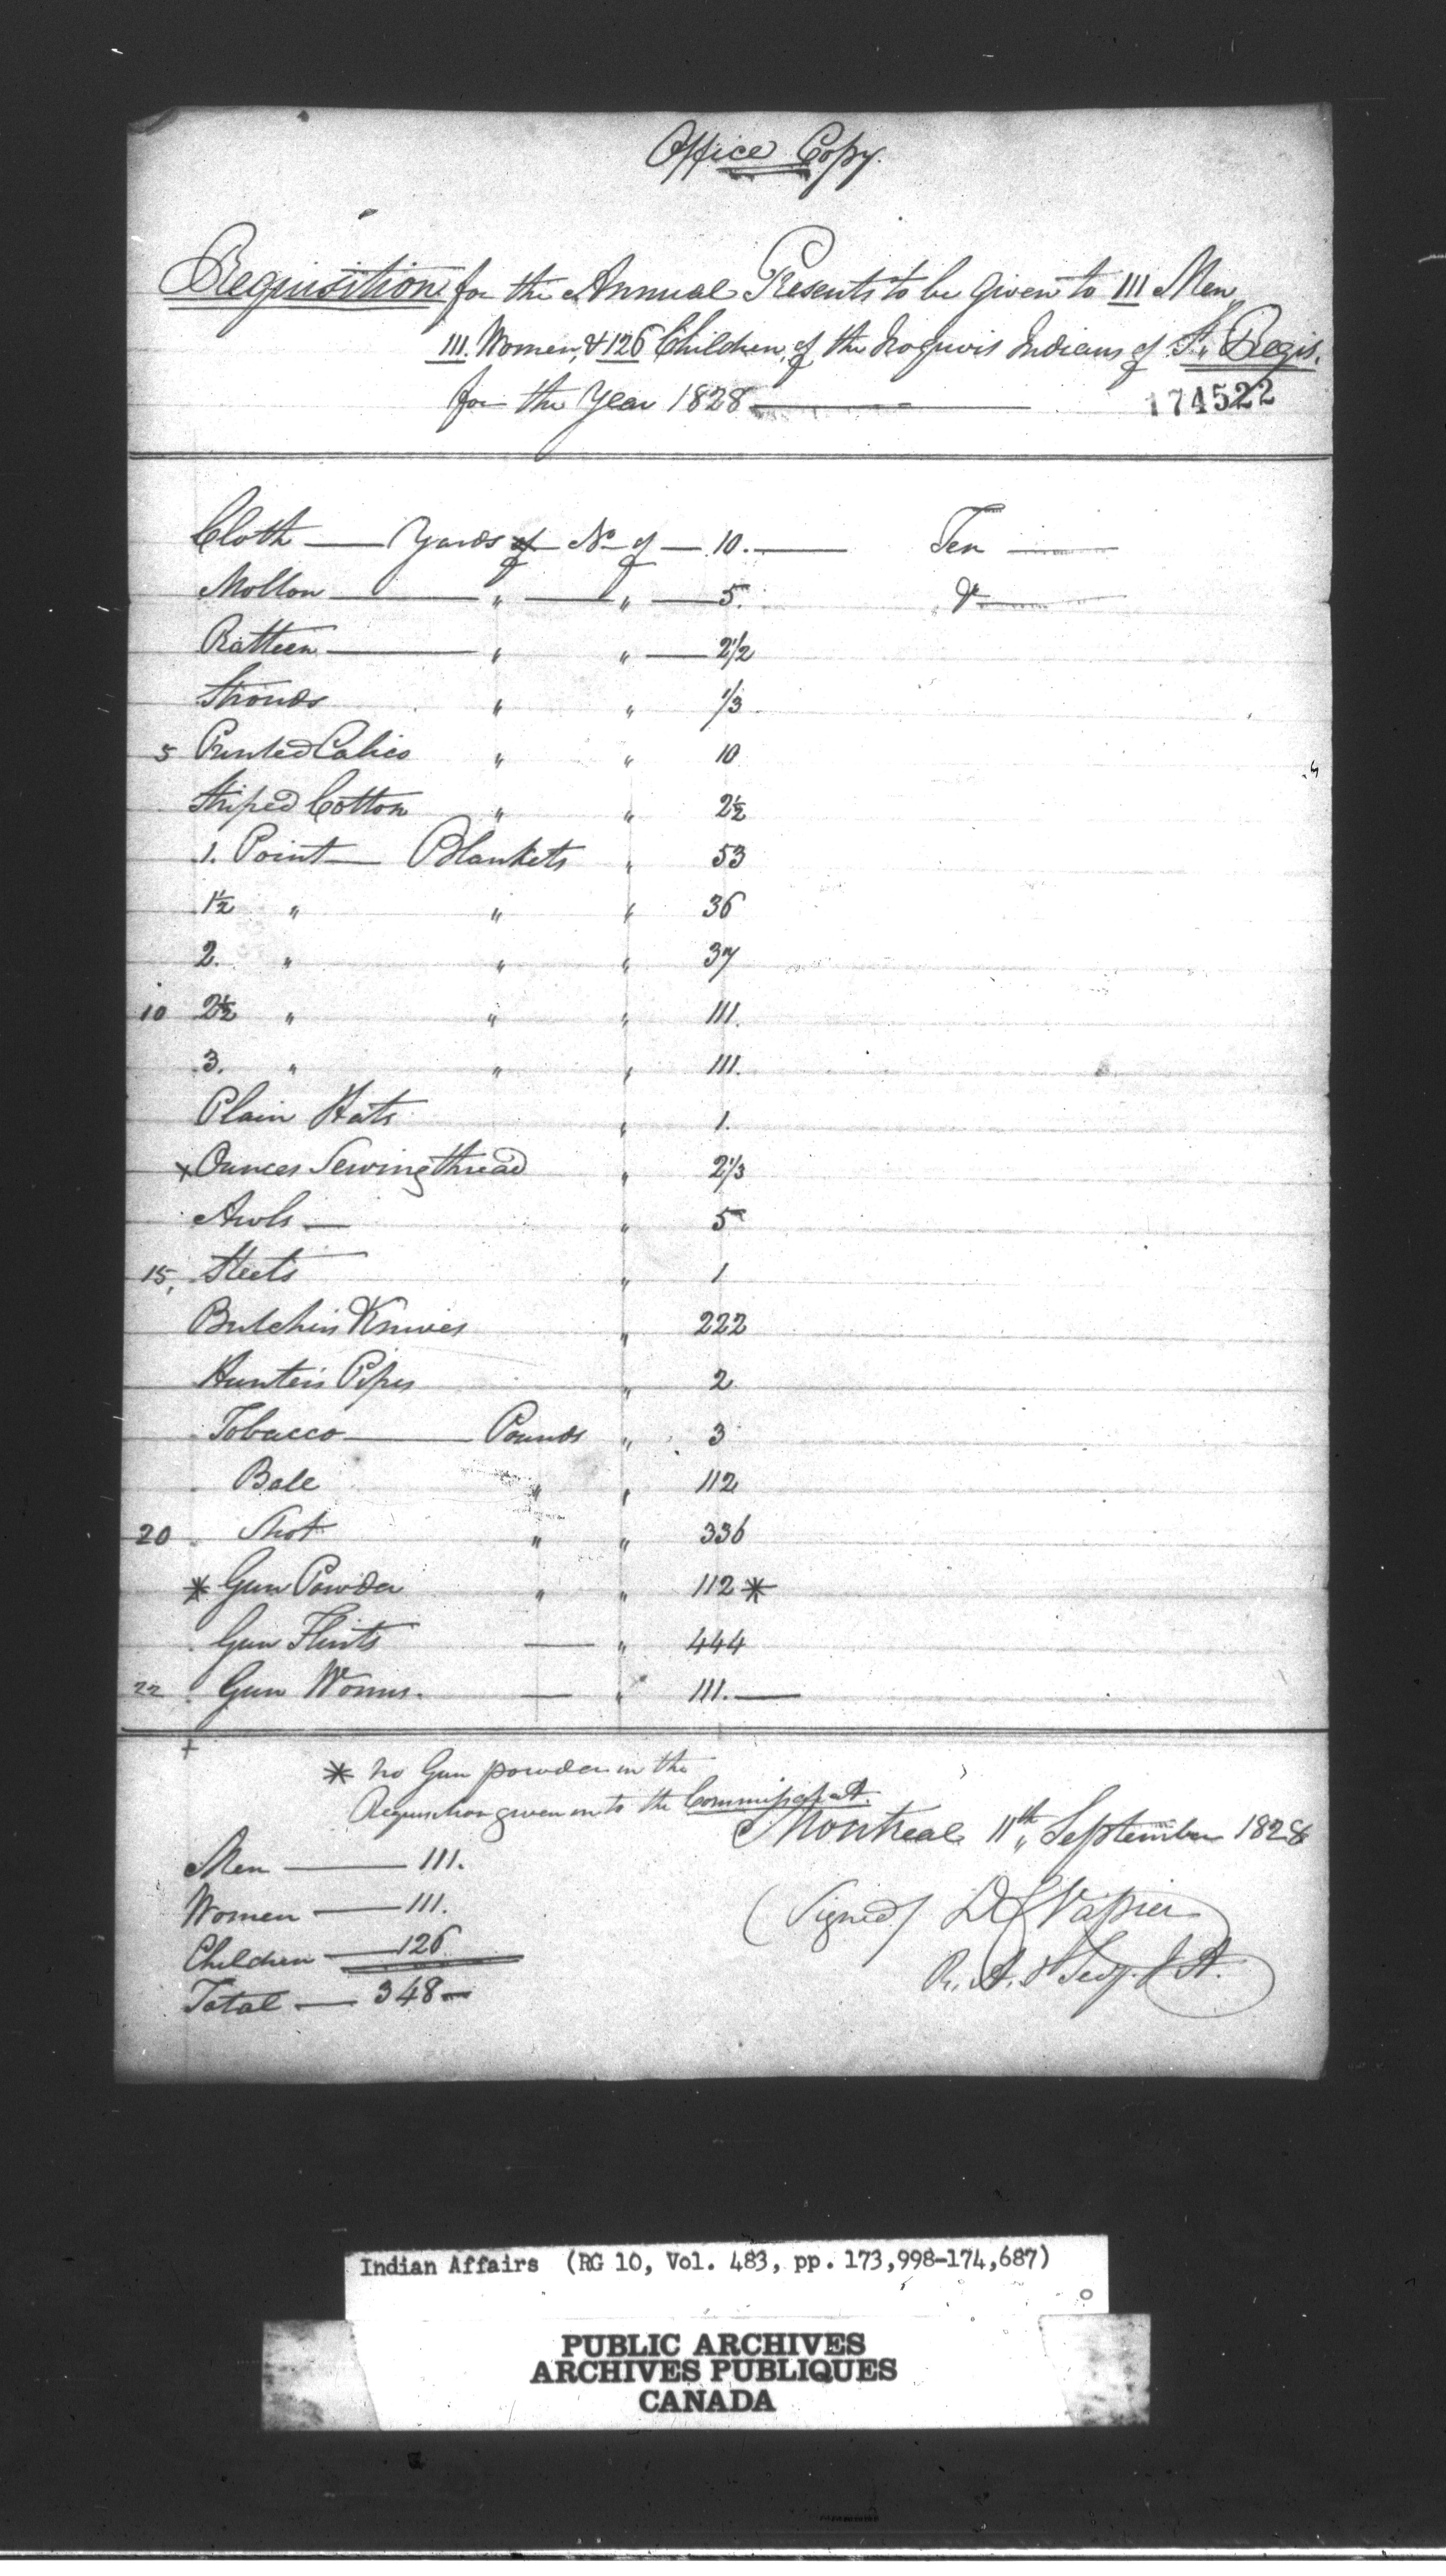 Office Copy.
Requisition for the Annual Presents to be given to 111 Men
111. Women, & 126 Children, of the Iroquois Indians of St. Regis.
for the Year 1828
174522
Cloth — Yards of — No of — 10. — Ten —
Mollon — " — " — 5. &
Ratteen — " " — 2½
Strouds " " ⅓
5 Printed Calico " " 10
Striped Cotton " " 2½
1. Point — Blankets " 53
1½ " " " 36
2. " " " 37
10 2½ " " " 111.
3. " " " 111.
Plain Hats " 1.
x Ounces Sewing thread " 2⅓
Awls — " 5
15, Steels " 1
Butchers Knives " 222
Hunters Pipes " 2
Tobacco — Pounds " 3
Ball " " 112
20 Shot " " 336
* Gun Powder " " 112 *
Gun Flints — " 444
22 Gun Worms. — " 111. —
+
* no Gun powder in the
Requisition given in to the Commissariat.
Montreal 11th September 1828
Men — 111.
Women — 111.
Children — 126
Total — 348 —
(Signed) D C Napier
R. A. & Secy. I A.
Indian Affairs (RG 10, Vol. 483, pp. 173,998-174,687)
PUBLIC ARCHIVES
ARCHIVES PUBLIQUES
CANADA